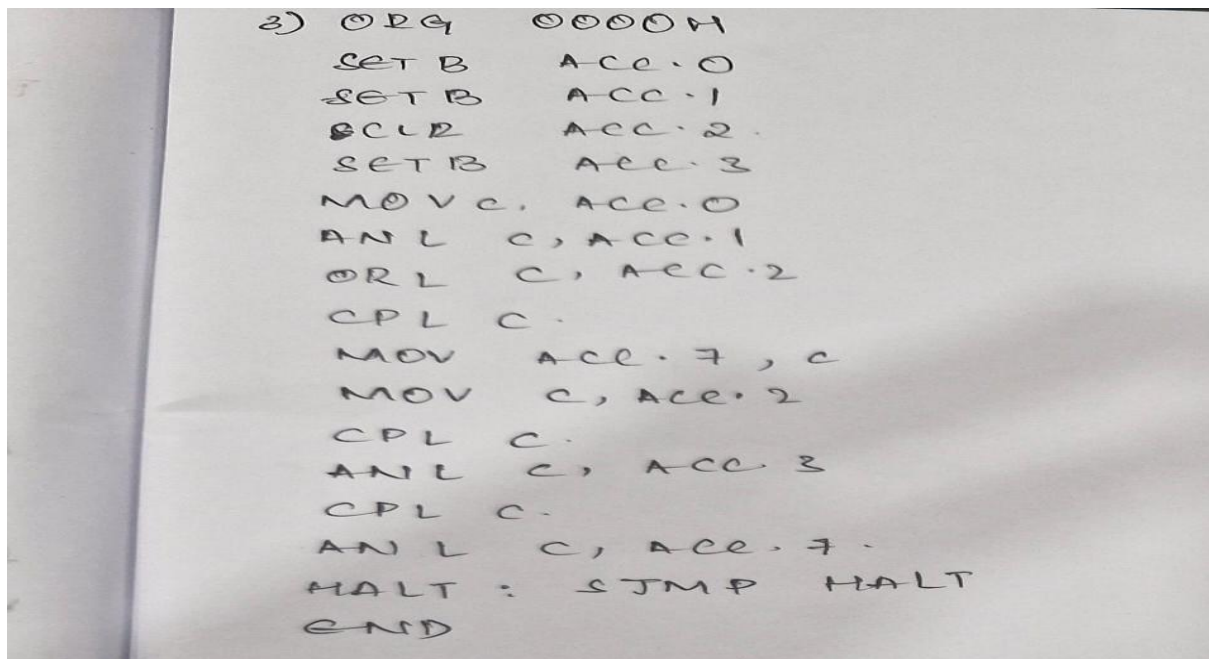 3) ORG 0000H
SETB ACC.0
SETB ACC.1
CLR ACC.2.
SETB ACC.3
MOV C. ACC.0
ANL C, ACC.1
ORL C, ACC.2
CPL C.
MOV ACC.7, C
MOV C, ACC.2
CPL C.
ANL C, ACC.3
CPL C.
ANL C, ACC.7.
HALT: SJMP HALT
END